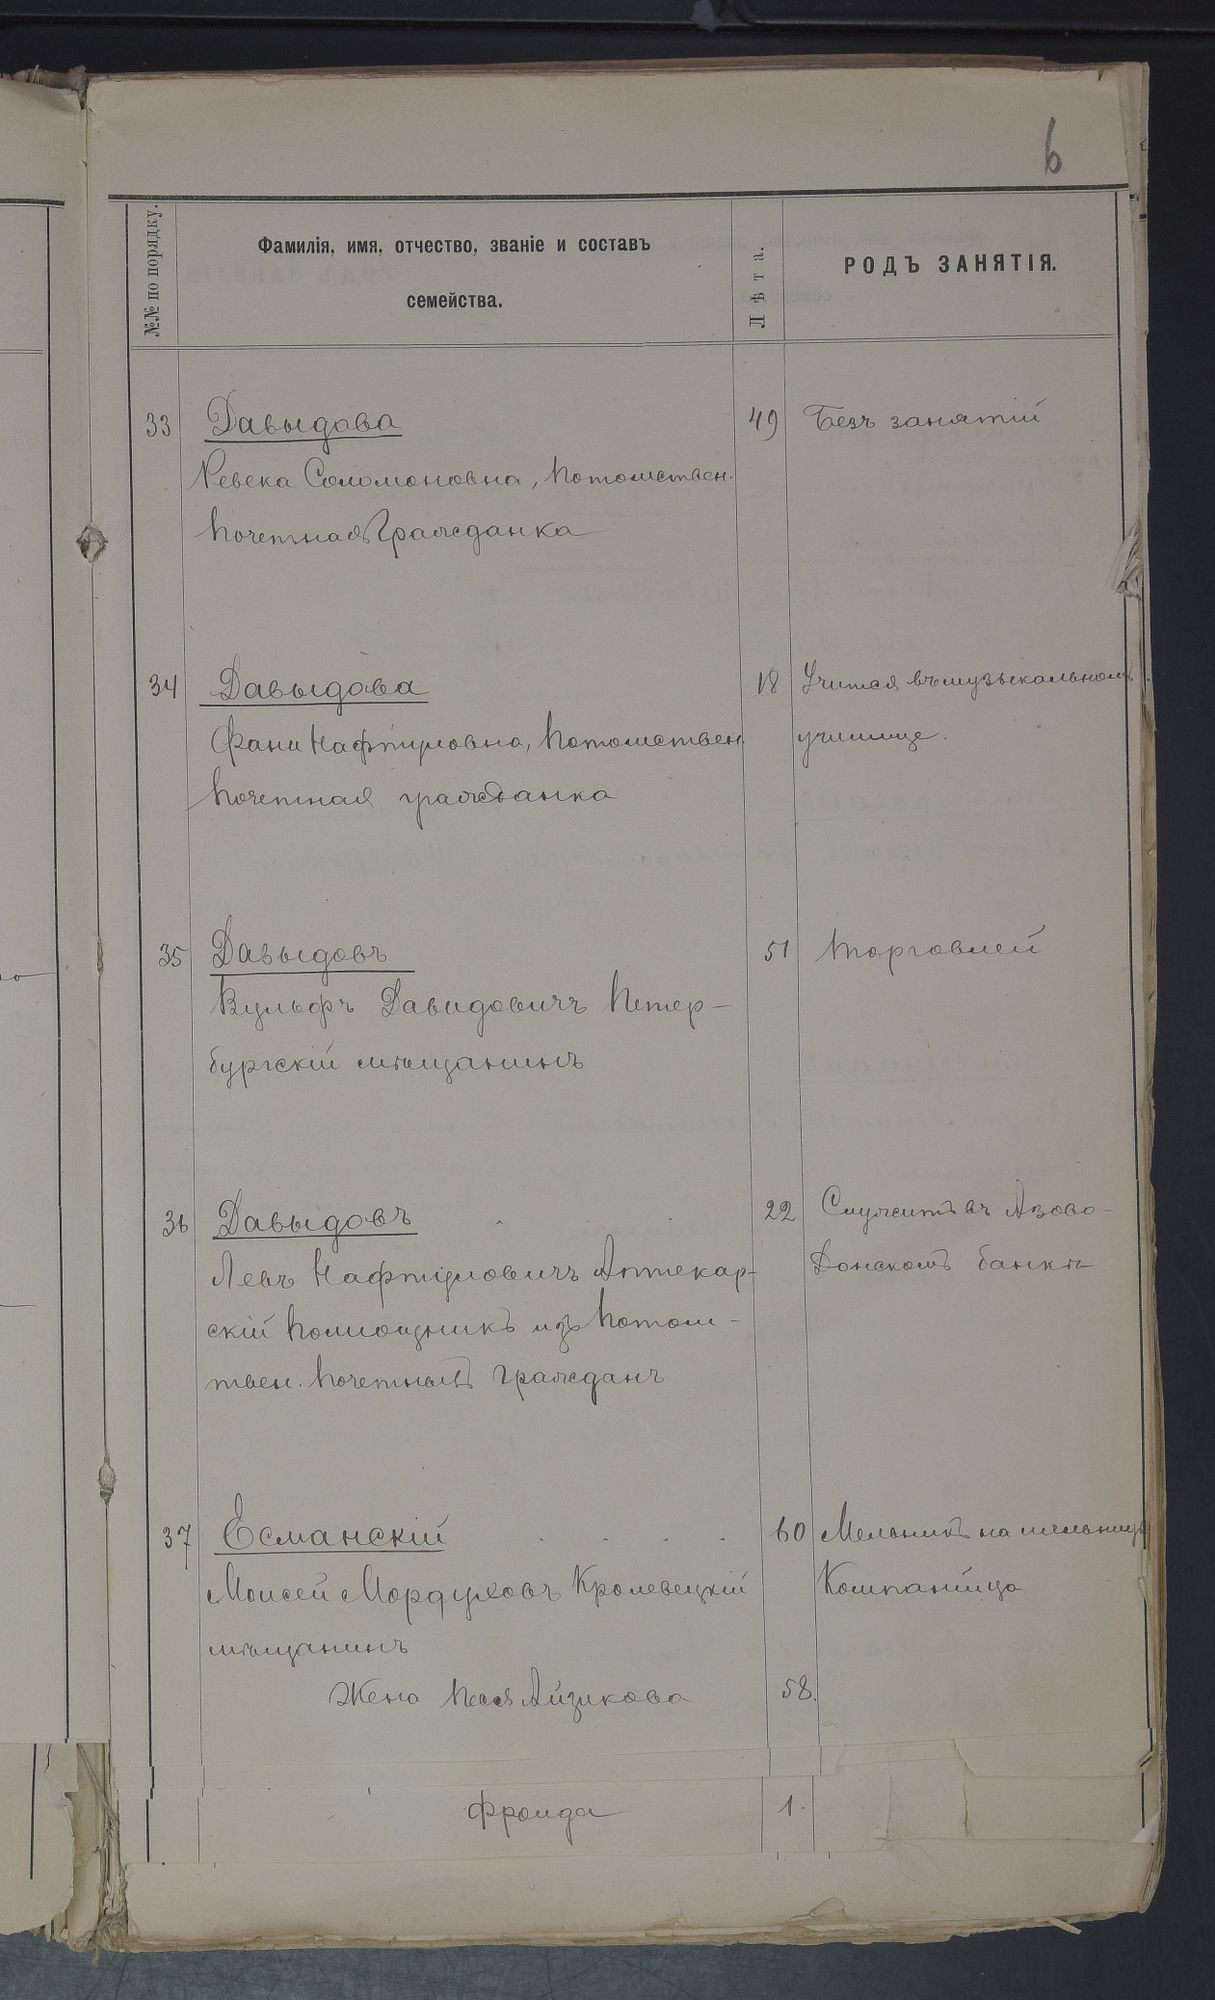 6
№№ по порядку.
Фамилія, имя, отчество, званіе и составъ
семейства.
Лѣта.
РОДЪ ЗАНЯТІЯ.
33 Давыдова 49 Безъ занятій
Ревека Соломоновна, Потомствен.
Почетная Гражданка
34 Давыдова 18 Учится въ музыкальномъ
Фани Нафтуловна, Потомствен. училище.
Почетная гражданка
35 Давыдовъ 51 Торговлей
Вульфъ Давидовичъ Петер-
бургскій мѣщанинъ
36 Давыдовъ 22 Служитъ въ Азово-
Левъ Нафтуловичъ Аптекар- Донскомъ банкѣ
скій Помощникъ изъ Потом-
ствен. Почетныхъ Гражданъ
37 Есманскій 60 Мельникъ на мельницѣ
Моисей Мордуховъ Кролевецкій Компанійца
мѣщанинъ
Жена Песя Айзикова 58.
Фроида 1.